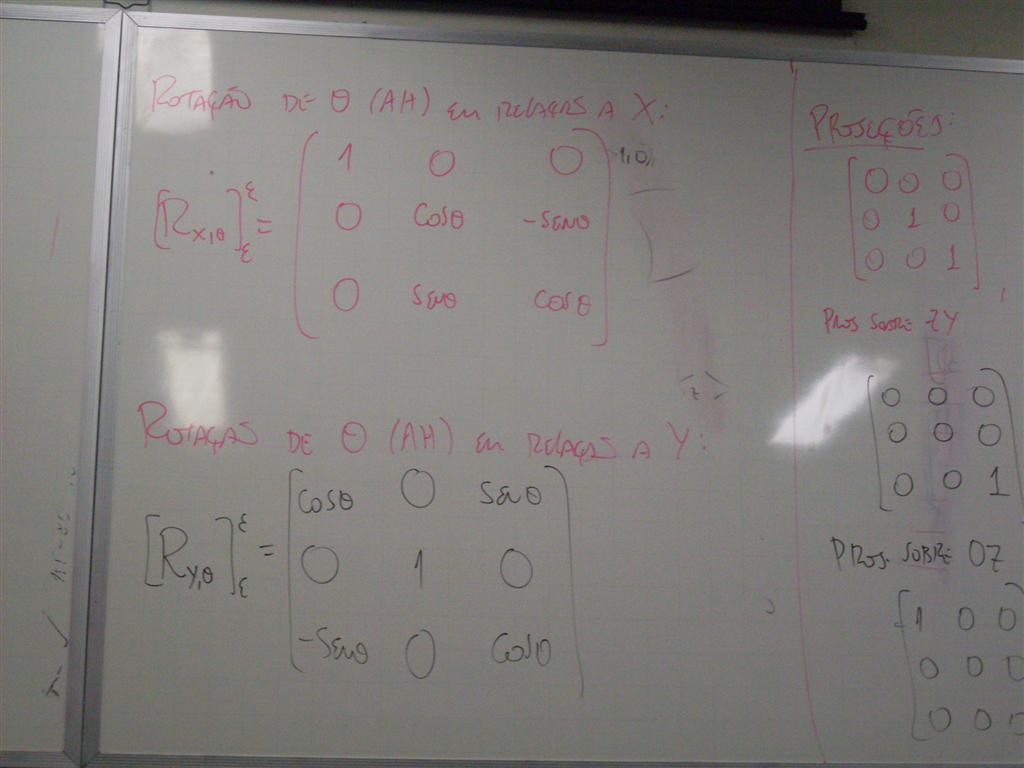 ROTAÇÃO DE θ (AH) EM RELAÇÃO A X:
[R x,θ] ε ε = ( 1 0 0
0 cosθ -senθ
0 senθ cosθ )
ROTAÇÃO DE θ (AH) EM RELAÇÃO A Y:
[R y,θ] ε ε = [ cosθ 0 senθ
0 1 0
-senθ 0 cosθ ]
PROJEÇÕES:
[ 0 0 0
0 1 0
0 0 1 ]
PROJ SOBRE ZY
[ 0 0 0
0 0 0
0 0 1 ]
PROJ. SOBRE OZ
[ 1 0 0
0 0 0
0 0 0